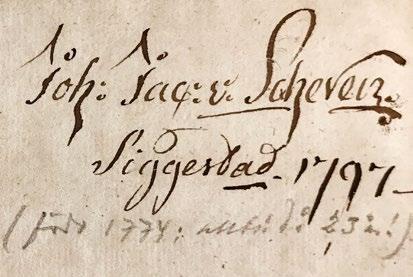 Joh: Jac: v. Scheven.
Siggestad. 1797
(född 1774; alltså då 23 år!)